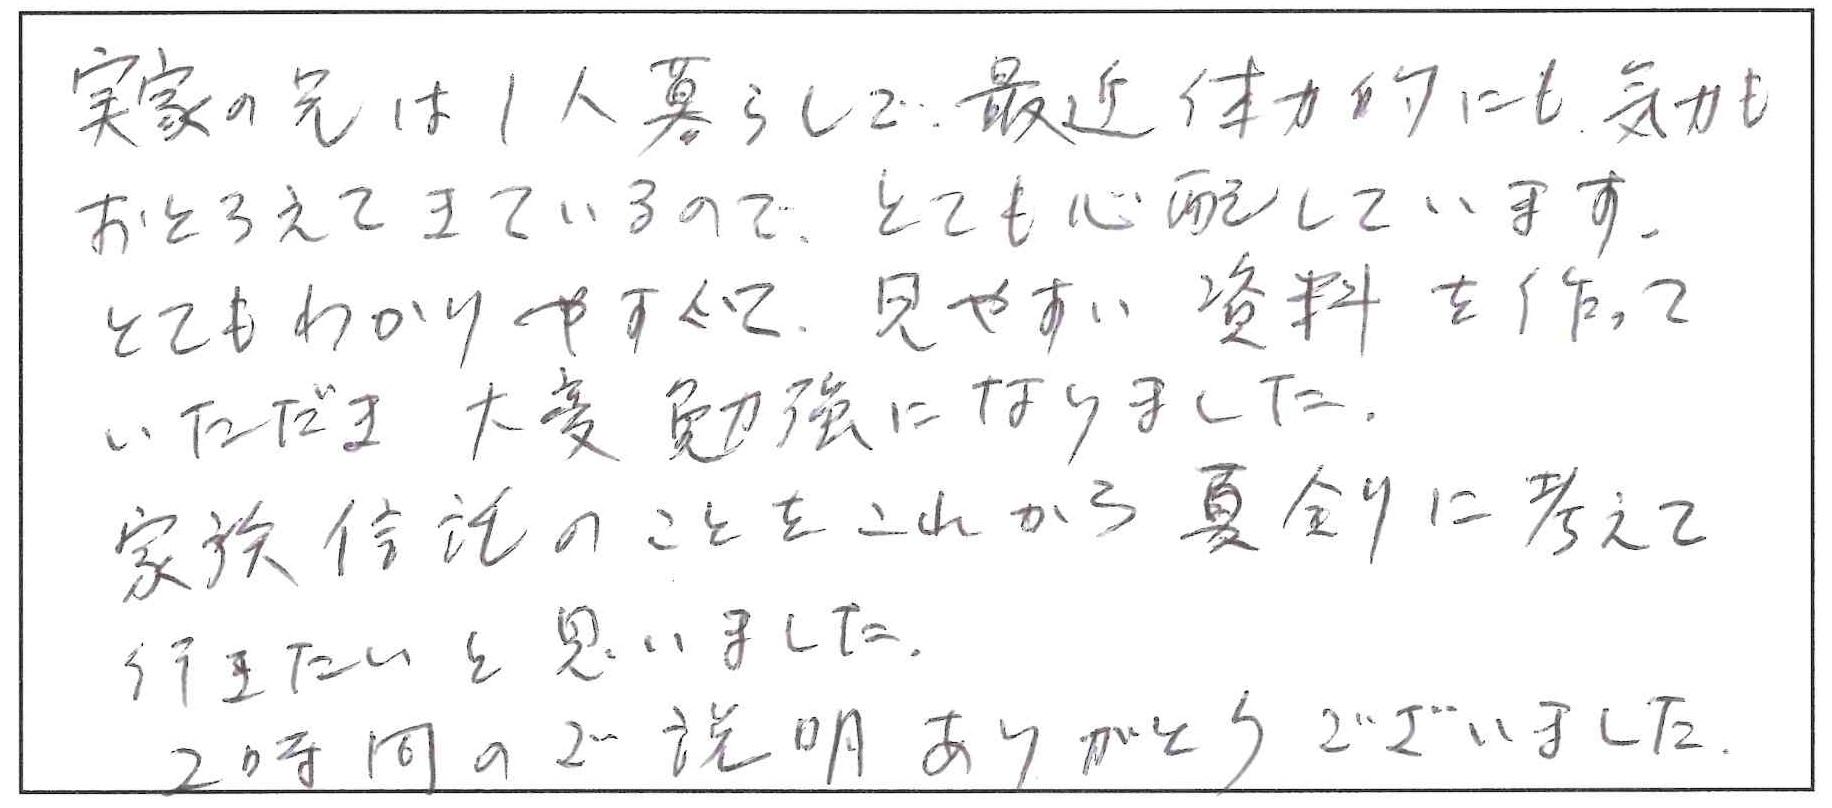 実家の兄は1人暮らしで、最近体力的にも、気力も
おとろえてきているので、とても心配しています。
とてもわかりやすくて、見やすい資料を作って
いただき 大変勉強になりました。
家族信託のことをこれから真剣に考えて
行きたいと思いました。
2時間のご説明ありがとうございました。